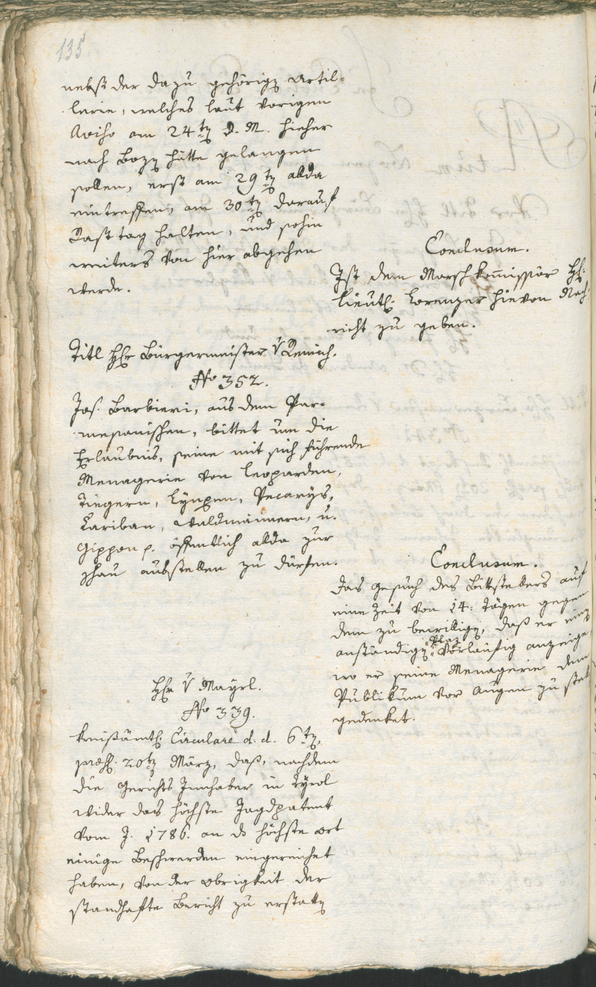 135
nebst der dazu gehörigen Artil-
lerie, welches laut vorigen
Aviso am 24ten d. M. hieher
nach Bozen hätte gelangen
sollen, erst am 29ten alda
eintreffen, am 30ten darauf
Rasttag halten, und sohin
weiters von hier abgehen
werde.
Conclusum.
Ist dem Marsch Kommissär H:
Lieut: Lorenzer hievon Nach
richt zu geben.
Titl Hr Bürgermeister v Remich.
No 352.
Jos. Barbieri, aus dem Par-
mesanischen, bittet um die
Erlaubnis, seine mit sich führende
Menagerie von Leoparden,
Tiegern, Lynxen, Pecarys,
Cariban, Waldmännern, u.
Gippon p. öffentlich alda zur
schau aufstellen zu dürfen.
Conclusum.
Das Gesuch des Bittstellers auf
eine Zeit von 14: Tägen gegen
dem zu bewilligen, daß er einen
anständigen Plaz vorläufig anzeige,
wo er seine Menagerie dem
Publikum vor Augen zu stel
gedenket.
Hr v Mayrl.
No 339.
Kreisämtl. Circulare d. d. 6ten,
præs. 20ten März, daß, nachdem
die Gerichts Innhaber in Tyrol
wider das höchste Jagdpatent
vom J. 1786. an d höchste Ort
einige Beschwerden eingereichet
haben, von der Obrigkeit der
standhafte Bericht zu erstatten